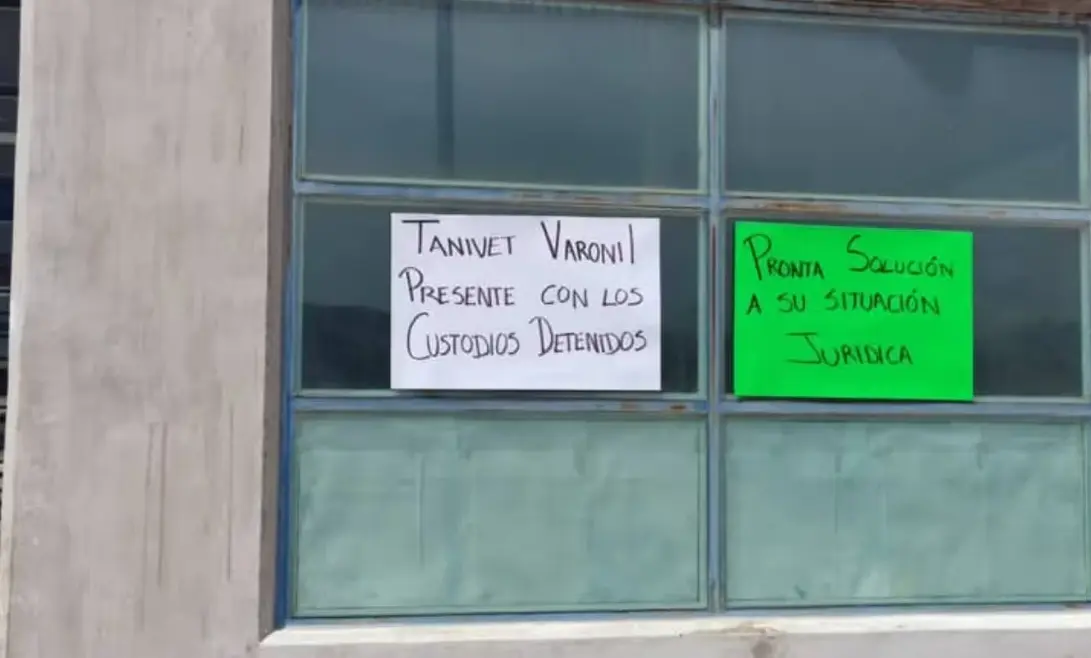 TANIVET VARONIL
PRESENTE CON LOS
CUSTODIOS DETENIDOS
PRONTA SOLUCIÓN
A SU SITUACIÓN
JURIDICA